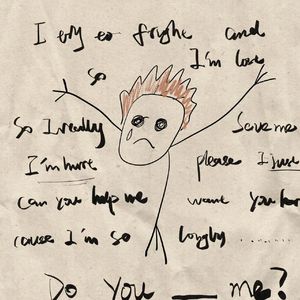 I and
so I'm
So I really Save me
I'm hurt please I just
can you help me want you
cause I'm so longly ........
Do you ___ me?